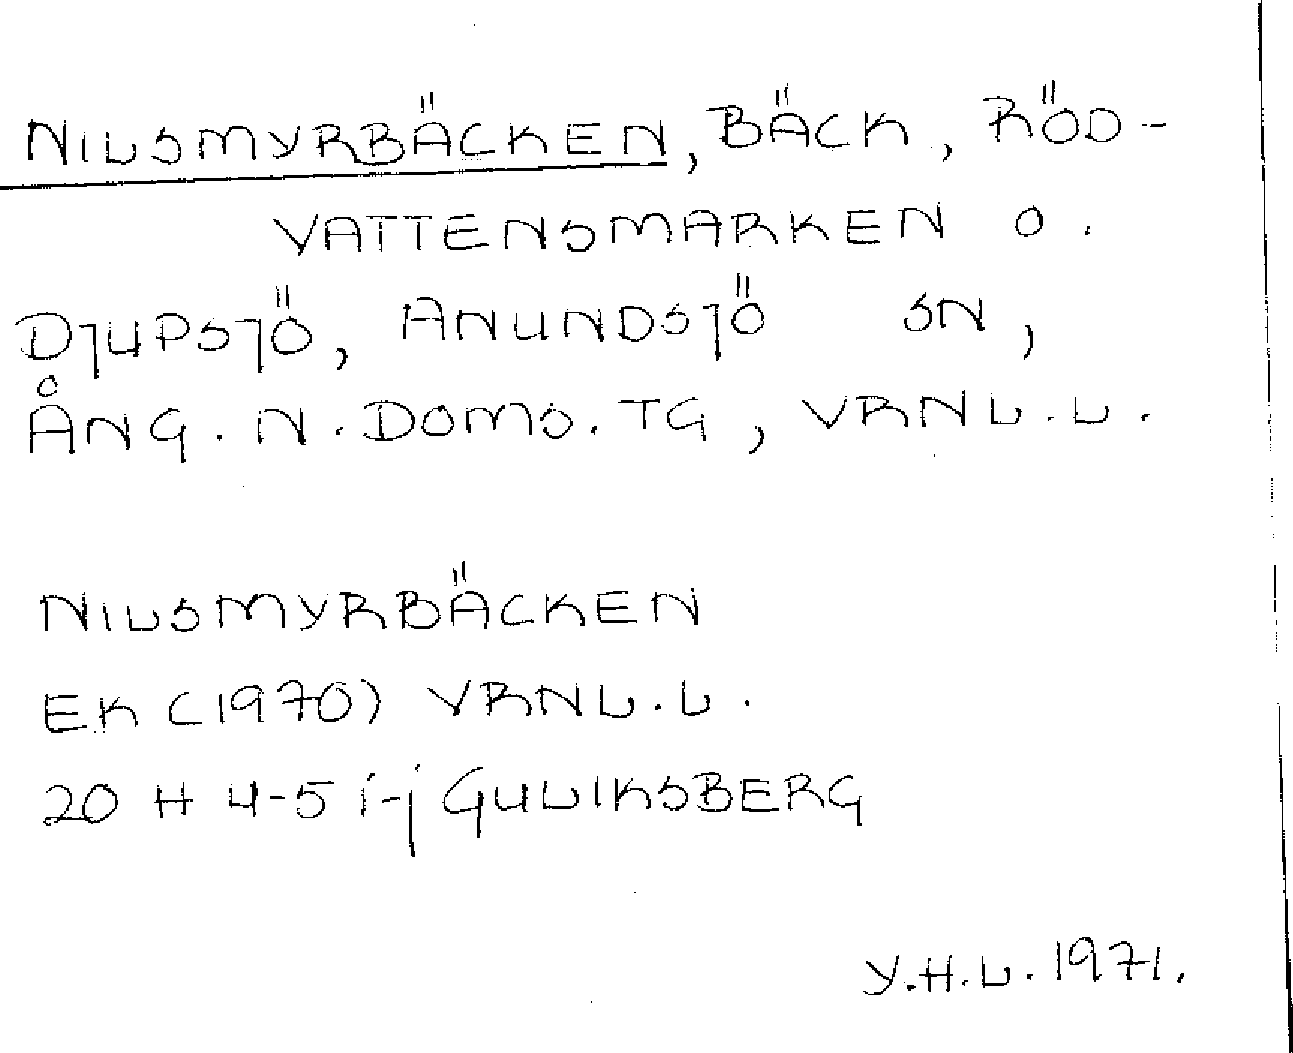 NILSMYRBÄCKEN, BÄCK, RÖD-
VATTENSMARKEN O.
DJUPSJÖ, ANUNDSJÖ SN,
ÅNG. N. DOMS. TG, VRNL. L.
NILSMYRBÄCKEN
EK (1970) VRNL. L.
20 H 4-5 i-j GULIKSBERG
Y.H.L. 1971.